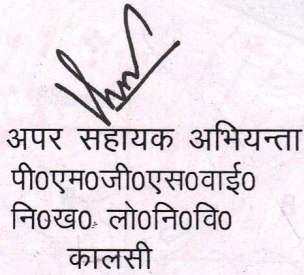 अपर सहायक अभियन्ता
पी0एम0जी0एस0वाई0
नि0ख0 लो0नि0वि0
कालसी